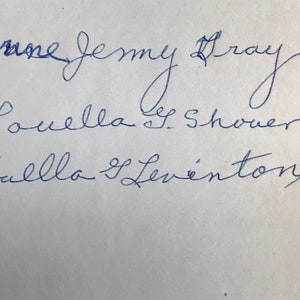 Jenny Gray
Louella G. Shover
G Levinton